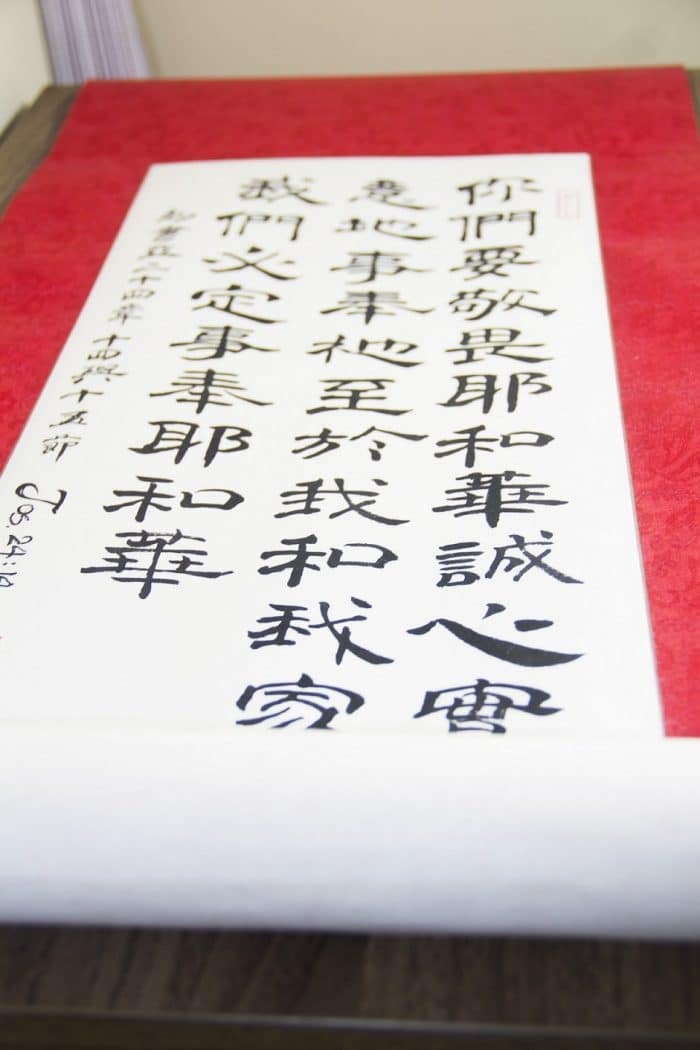 你們要敬畏耶和華誠心實
意地事奉祂至於我和我家
我們必定事奉耶和華
約書亞二十四章十四十五節
Jos. 24:14